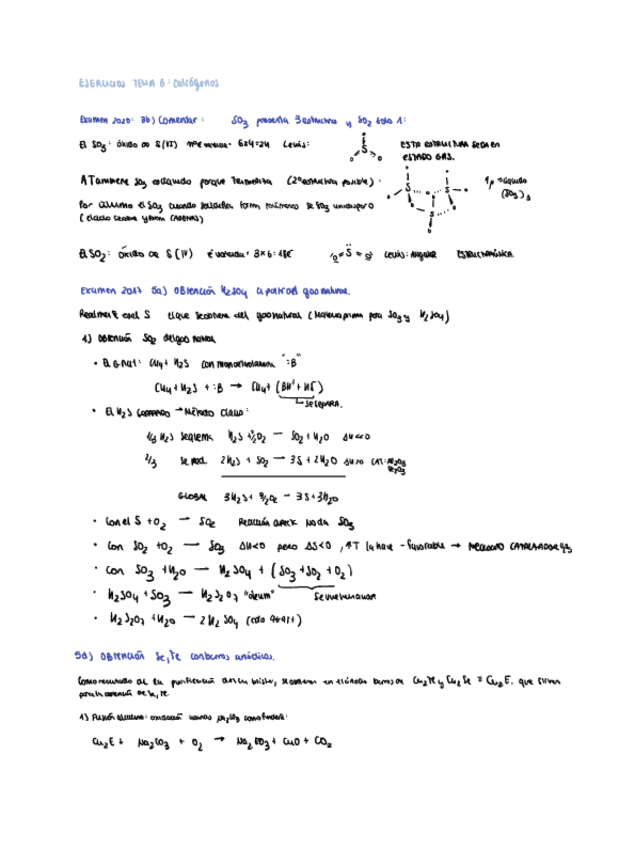 EJERCICIOS TEMA 6: Calcógenos
Examen 2020: 3b) Comentar: SO3 presenta 3 estructuras y SO2 solo 1:
El SO3: óxido de S(VI) nº e valencia = 6x4=24 Lewis:
ESTA ESTRUCTURA SERÍA EN
ESTADO GAS.
S
O O
A Tambiente SO3 es líquido porque trimeriza (2ª estructura posible):
S S S
(SO3)3
Por último el SO3 cuando solidifica forma polímeros de SO3
El SO2: óxido de S(IV) é valencia = 3x6=18é O=S=O Lewis: Angular
Examen 2017 5a) Obtención H2SO4 a partir del gas natural.
Realmente es el S el que se obtiene del gas natural (Materia prima para SO3 y H2SO4)
1) Obtención SO2 del gas natural
• El G.nat: CH4+H2S con monoetanolamina ":B"
CH4+H2S + :B → CH4+ (BH⁺+HS⁻)
SE SEPARA.
• El H2S → Método Claus:
1/3 H2S se quema H2S + 3/2O2 — SO2+H2O ΔH<<0
2/3 2H2S + SO2 — 3S + 2H2O CAT:
GLOBAL 3H2S + 3/2O2 — 3S+3H2O
• Con el S + O2 — SO2 Reacción no da SO3
• Con SO2 +O2 — SO3 ΔH<0 pero ΔS<0, ↑T la hace - favorable → NECESITO CATALIZADOR
• Con SO3 +H2O — H2SO4 + (SO3+SO2+O2)
• H2SO4 + SO3 — H2S2O7 "oleum"
• H2S2O7 +H2O — 2H2SO4
5d) Obtención Se, Te con barros anódicos.
Como resultado de la purificación del Cu blister, se obtienen barros de Cu2Te y Cu2Se ≡ Cu2E. que sirven
para la obtención de Se, Te.
1) Fusión alcalina: oxidación usando Na2CO3 como fundente:
Cu2E + Na2CO3 + O2 → Na2EO3 + CuO + CO2